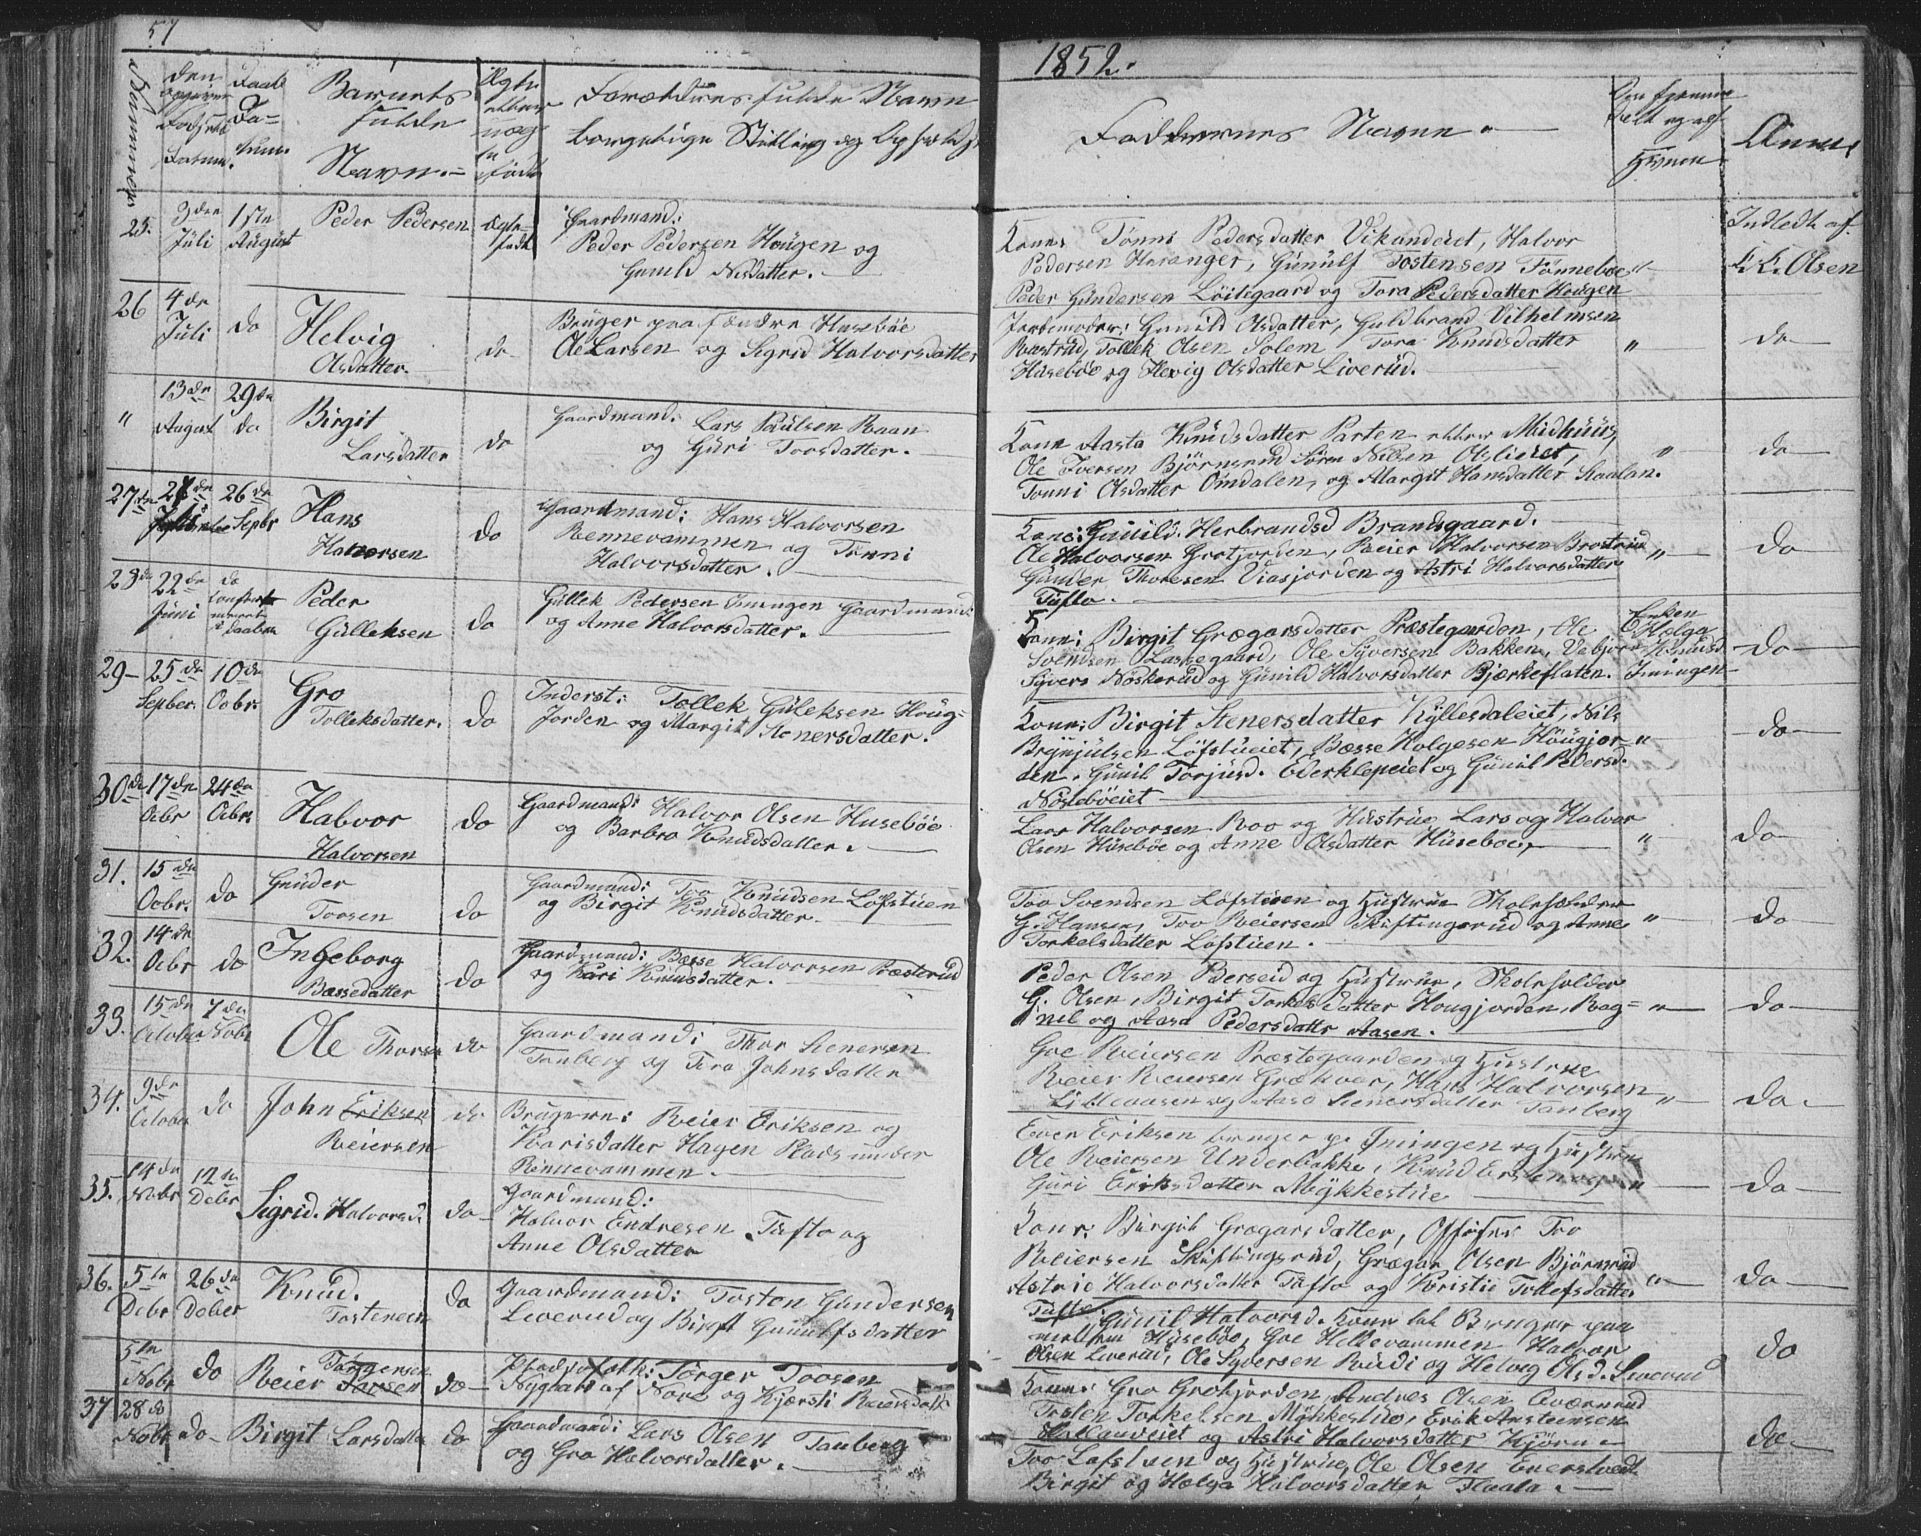 57
1852.
Nummer
den
Fødsels
Daab
Da-
tum.
Barnets
fulde
Navn.
Ægte
eller
uæg-
te
født
Forældrenes fulde Navn
borgerlige Stilling og
Faddernes Navne
Anm.
25. 3den Juli 1ste August Peder Pedersen Ægte-født
Gaardmand:
Peder Pedersen Hougen og
Gunild Nisdatter.
Kone: Tønni Pedersdatter Vikandeiet, Halvor
Pedersen Haranger, Gunulf Tostensen Tønneboe
Peder Gundersen Løitegaard og Tora Pedersdatter Hougen
Indledt af
K. K. Olsen
26 4de Juli do Helvig
Olsdatter. do
Bruger paa søndre Husebøe
Ole Larsen og Sigrid Halvorsdatter
Jordemoder: Gunild Olsdatter, Guldbrand Vilhelmsen
Rastrud, Tollek Olsen Solem Tora Knudsdatter
Husebøe og Hevig Olsdatter Liverud.
" do
" 13de August 29de do Birgit
Larsdatter do
Gaardmand: Lars Paulsen Raan
og Guri Toosdatter.
Kone Aasta Knudsdatter Parten eller Midhuus,
Ole Iversen Bjørnsrud Søren Nilsen Olslieiet,
Tonni Olsdatter Omdalen, og Margit Hansdatter Staalan.
" do
27de 26de Sepbr Hans
Halvorsen do
Gaardmand: Hans Halvorsen
Rennevammen og Tonni
Halvorsdatter.
Kone: Gunild Herbrandsd Brandsgaard.
Ole Halvorsen Grotjorden, Reier Halvorsen Brostrud
Gunder Thoresen Viasjorden og Astri Halvorsdatter
Tufto.
" do
28de 22de Juni do
Peder
Gulleksen do
Gullek Pedersen Imingen Gaardmand
og Anne Halvorsdatter.
Kone: Birgit Grægarsdatter Præstegaarden, Ole
Svendsen Laskegaard, Ole Syversen Bakken, Vebjør
Syvers Nøskerud og Gunild Halvorsdatter Bjærkeflaten.
Enken
Helga
Knudsd
Imingen
do
29 25de Sepber 10de Oobr. Gro
Tolleksdatter. do
Inderst: Tollek Guleksen Houg-
Jorden og Margit Stenersdatter.
Kone: Birgit Stenersdatter Kyllesdaleiet, Nils
Brynjulsen Løfstueiet, Basse Holgesen Hougjor-
den, Gunil Torjusd. Ederklepeiet og Gunil Pedersd.
Nosebøeiet
" do
30de 17de Ocbr 24de Ocbr. Halvor
Halvorsen do
Gaardmand: Halvor Olsen Husebøe
og Barbro Knudsdatter.
Lars Halvorsen Roo og Hustrue Lars og Halvor
Olsen Husebøe og Anne Olsdatter Huseboe,
" do
31. 15de Ocbr. do Gunder
Toosen do
Gaardmand: Too Knudsen Lofstuen
og Birgit Knudsdatter.
Too Svendsen Løfstuen og Hustrue Skoleholder
G. Hansen, Too Reiersen Skiftingerud og Anne
Torkelsdatter Lofstuen.
" do
32. 14de Ocbr do Ingeborg
Bassedatter do
Gaardmand: Basse Halvorsen Præsterud
og Kari Knudsdatter.
Peder Olsen Berseid og Hustrue, Skoleholder
G. Olsen, Birgit Torkelsdatter Hougjorden, Rag-
nil og Aasa Pedersdattr Aasen.
" do
33. 15de October 7de Nobr Ole Thorsen do
Gaardmand: Thor Stenersen
Tonberg og Tora Johnsdatter
Goe Reiersen Præstegaarden og Hustrue
Reier Reiersen Grækver, Hans Halvorsen
Litleaasen og Aasa Stenersdatter Tanberg
" do
34. 9de October do John Eriksen
Reiersen do
Brugere: Reier Eriksen og
Kbarisdatter Hagen Plads under
Rennevammen.
Even Eriksen bruger p. Imingen og Hustrue
Ole Reiersen Underbakke, Knud Erstensen og
Guri Eriksdatter Mykkestue
" do
35. 14de Nobr 12te Debr Sigrid Halvorsd. do
Gaardmand:
Halvor Endresen Tufto og
Anne Olsdatter
Kone: Birgit Grægarsdatter, Too
Reiersen Skiftingsrud, Grægar Olsen Bjørnsrud
Astrie Halvorsdatter Tufto og Kristie Tollefsdatter
Tufte.
" do
36. 5te Debr 26de Deber Knud.
Tostensen do
Gaardmand: Tosten Gundersen
Liverud og Birgit Gunulfsdatter
Gunil Halvorsd. Kone til Bruger paa
mellem Husebøe, Goe Hellevammen Halvor
Olsen Liverud, Ole Syversen Rudi og Helvig Olsd. Liverud
do
5te Nobr do Reier Torgersen
Toosen do
Pladsfolk: Torger Toosen
Nygaard af Nore og Kjersti Reiersdatt
Kone: Gro Grotjorden Andres Olsen Eværnrud
Tosten Torkelsen Mykkestue, Erik Anstensen
Hallanveiet og Astri Halvorsdatter Kjørn
do
37 28de Nobr do Birgit Larsdatter do
Gaardmand: Lars Olsen Tanberg
og Gro Halvorsdatter.
Too Lofstuen og Hustrue, Ole Olsen Enerstvedt
Birgit og Helga Halvorsdatter Flaata.